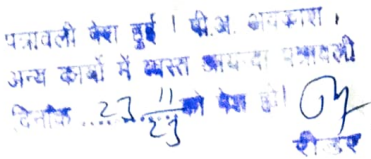 पत्रावली पेश हुई । पी.अ. अवकाश ।
अन्य कार्यों में व्यस्त आयन्दा पत्रावली
दिनांक ....23.11/23 को पेश हो।
रीडर